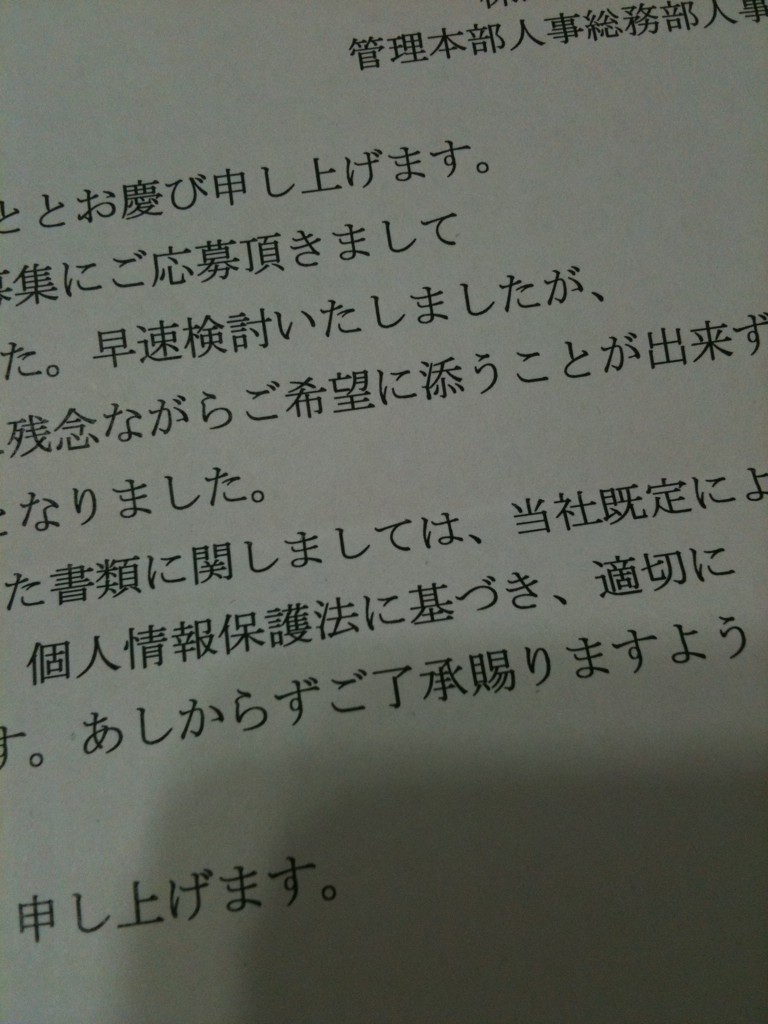 管理本部人事総務部人事
ととお慶び申し上げます。
募集にご応募頂きまして
た。早速検討いたしましたが、
残念ながらご希望に添うことが出来ず
となりました。
た書類に関しましては、当社既定によ
個人情報保護法に基づき、適切に
す。あしからずご了承賜りますよう
申し上げます。